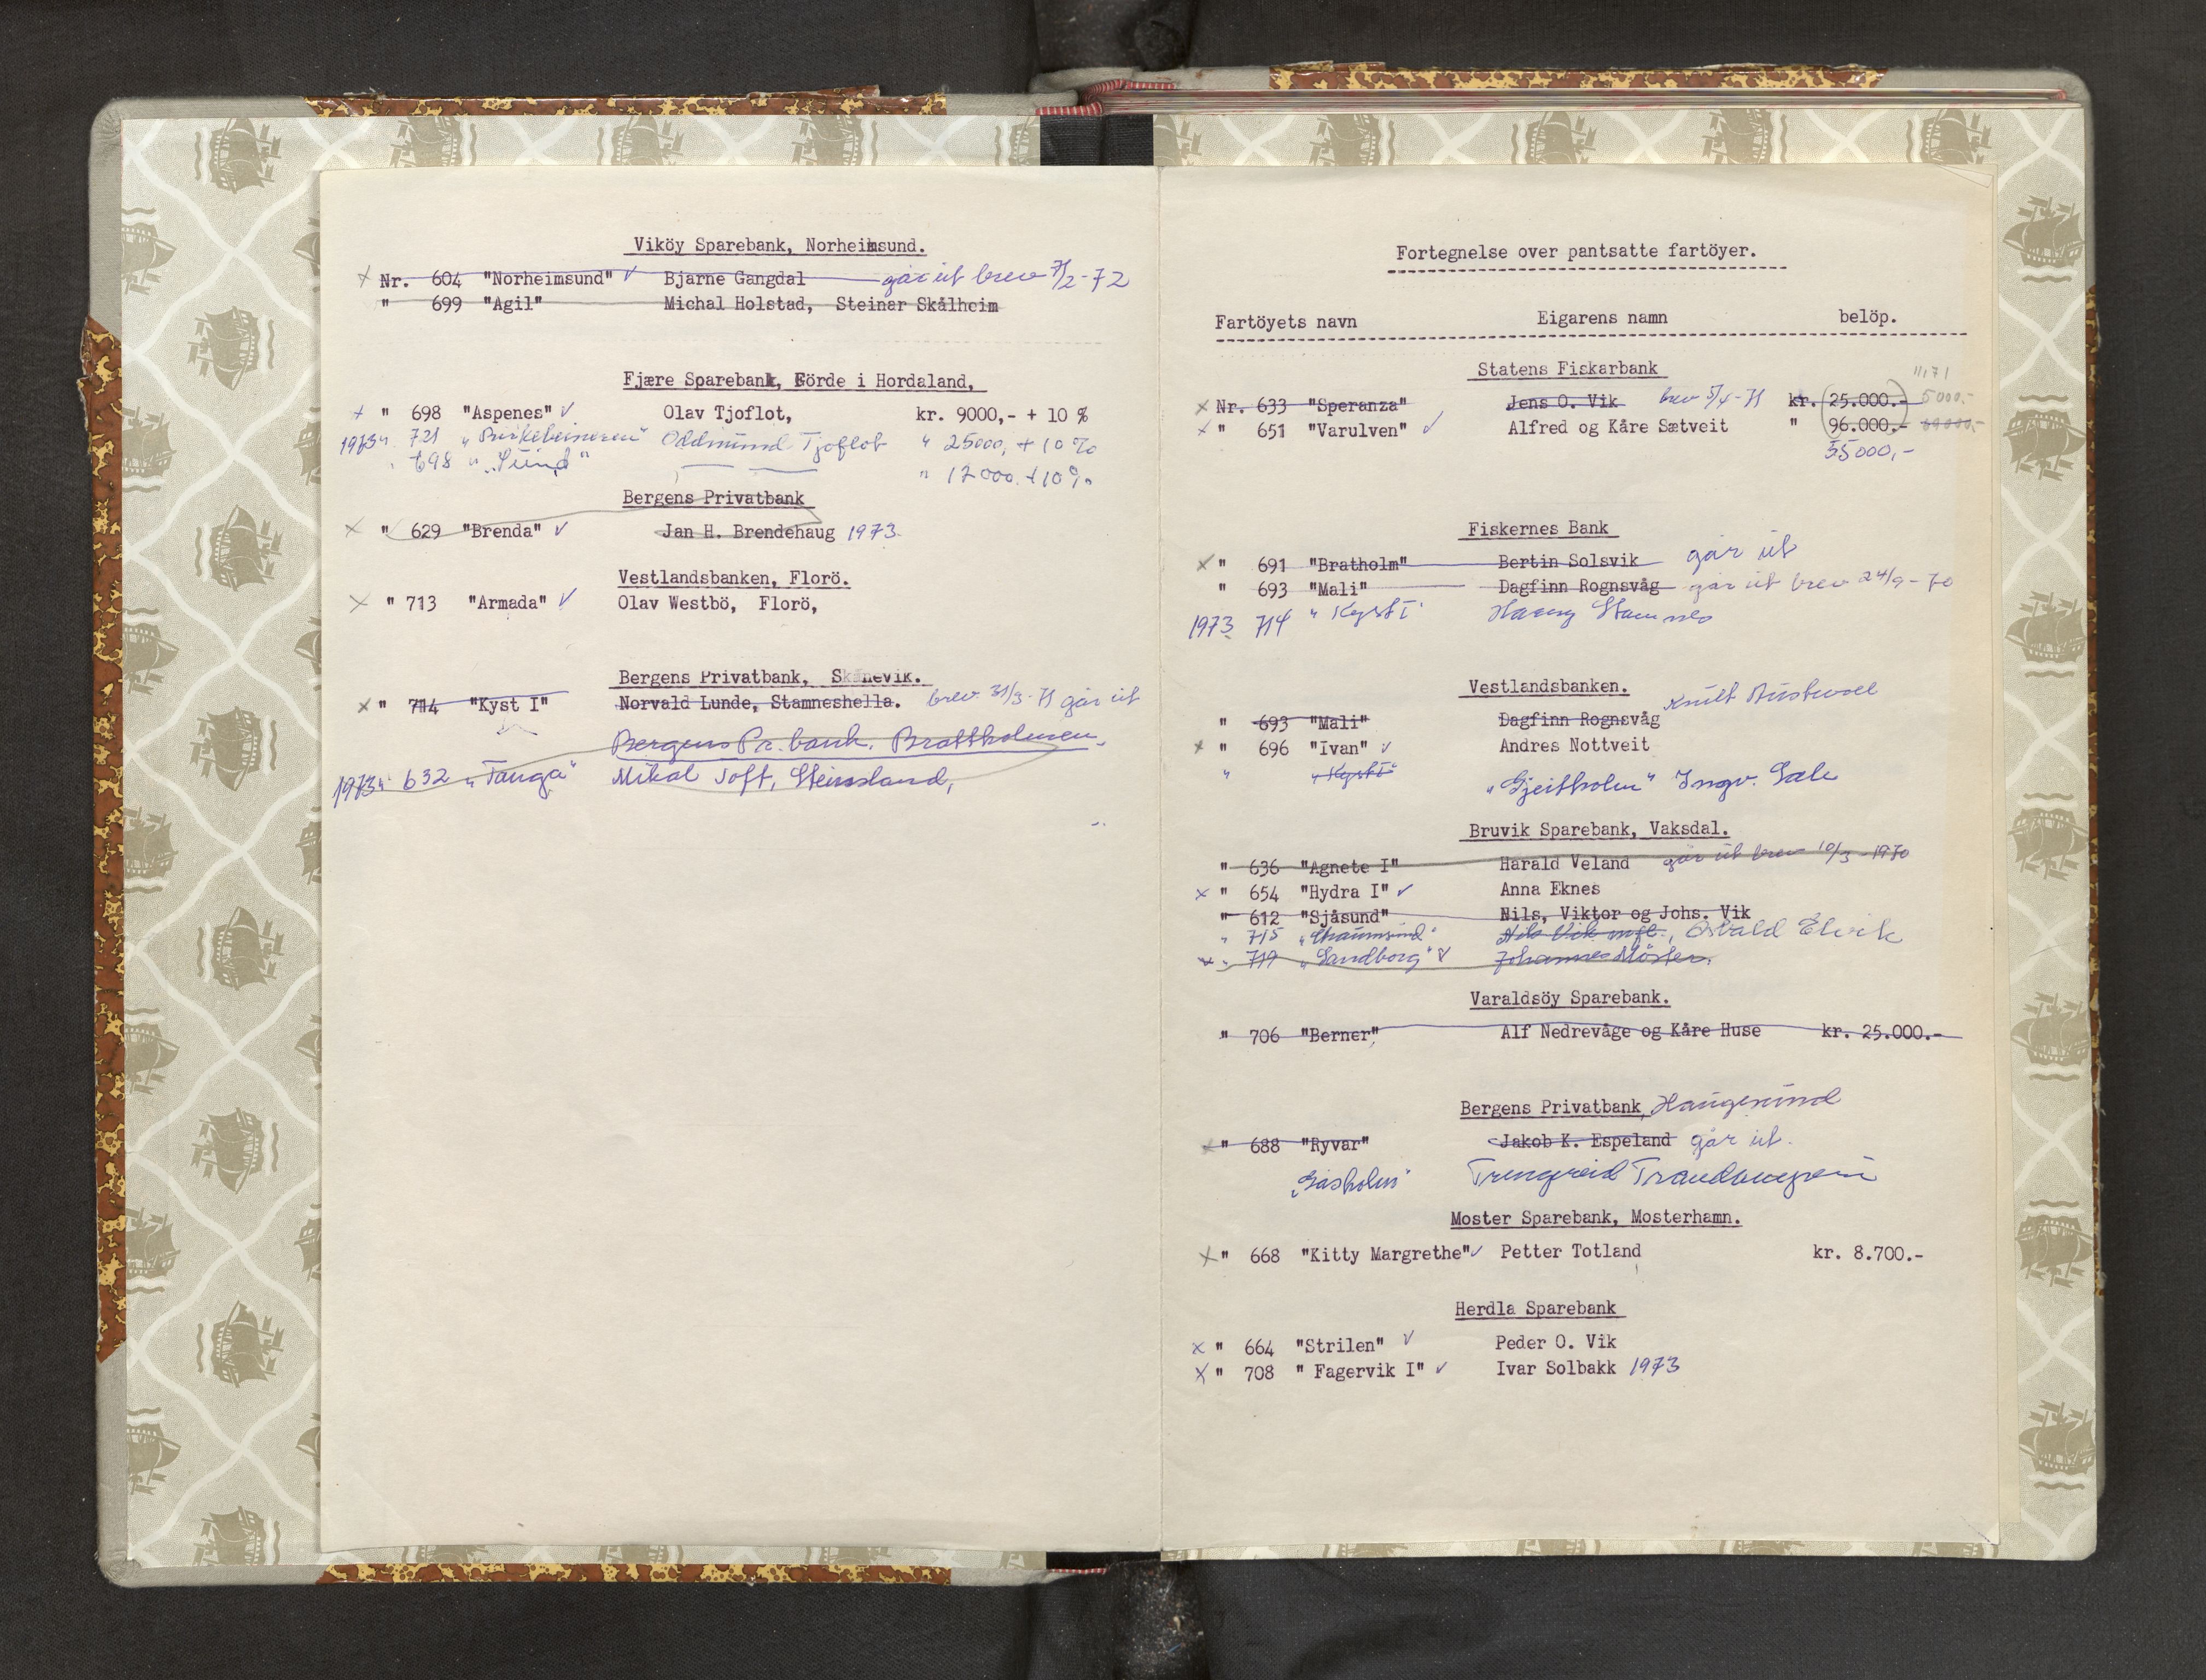 Viköy Sparebank, Norheimsund.
Nr. 604 "Norheimsund" ✓ Bjarne Gangdal går ut brev 7/2-72
" 699 "Agil" Michal Holstad, Steinar Skålheim
Fjære Sparebank, Förde i Hordaland,
+ " 698 "Aspenes" ✓ Olav Tjoflot, kr. 9000,- + 10 %
1973 " 721 "Birkebeineren" Oddmund Tjoflot " 25000, + 10 %
" 698 " "Sund" " 12000 + 10 %
Bergens Privatbank
x " 629 "Brenda" ✓ Jan H. Brendehaug 1973
Vestlandsbanken, Florö.
x " 713 "Armada" ✓ Olav Westbö, Florö,
Bergens Privatbank, Skånevik.
x " 714 "Kyst I" Norvald Lunde, Stamneshella. brev 31/3-71 går ut
Bergens Pr. bank, Brattholmen.
1973 " 632 "Tanga" Mikal Toft, Steinsland,
Fortegnelse over pantsatte fartöyer.
Fartöyets navn Eigarens namn belöp.
Statens Fiskarbank
11,71
x Nr. 633 "Speranza" Jens O. Vik brev 5/4-71 kr. (25.000.-) 5000.-
x " 651 "Varulven" ✓ Alfred og Kåre Sætveit " 96.000.-
55000,-
Fiskernes Bank
x " 691 "Bratholm" Bertin Solsvik går ut
" 693 "Mali" Dagfinn Rognsvåg går ut brev 24/9-70
1973 714 " Kyst I" Harry Stamnes
Vestlandsbanken.
" 693 "Mali" Dagfinn Rognsvåg Knut
x " 696 "Ivan" ✓ Andres Nottveit
" "Kyst I" "Gjeitholm" Ingv. Sale
Bruvik Sparebank, Vaksdal.
" 636 "Agnete I" Harald Veland går ut brev 10/3-1970
x " 654 "Hydra I" ✓ Anna Eknes
" 612 "Sjåsund" Nils, Viktor og Johs. Vik
" 715 Nils Vik mfl., Osvald Elvik
x " 719 "Sandborg" ✓ Johannes Möster.
Varaldsöy Sparebank.
" 706 "Berner" Alf Nedrevåge og Kåre Huse kr. 25.000.-
Bergens Privatbank, Haugesund
x " 688 "Ryvar" Jakob K. Espeland går ut.
"Gåsholm" Trengereid
Moster Sparebank, Mosterhamn.
x " 668 "Kitty Margrethe" ✓ Petter Totland kr. 8.700.-
Herdla Sparebank
x " 664 "Strilen" ✓ Peder O. Vik
x " 708 " Fagervik I" ✓ Ivar Solbakk 1973